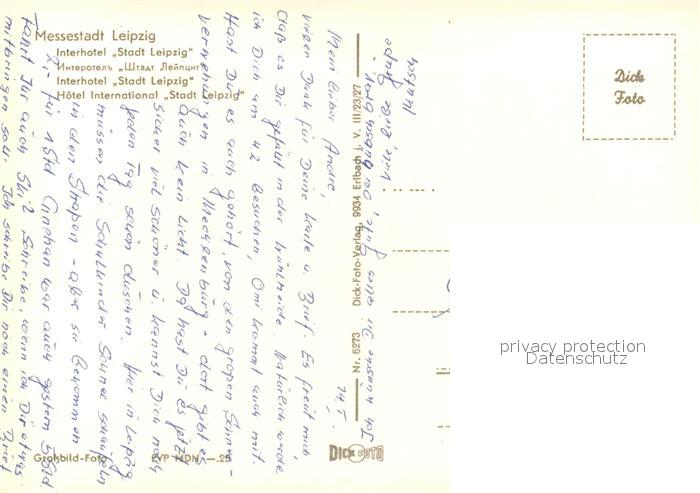 Messestadt Leipzig
Interhotel „Stadt Leipzig“
Интеротель „Штадт Лейпциг“
Interhotel „Stadt Leipzig“
Hôtel International „Stadt Leipzig“
Großbild-Foto EVP MDN —.25
Nr. 6273 Dick-Foto-Verlag, 9934 Erlbach i. V. III/23/27
DICK FOTO
Dick
Foto
privacy protection
Datenschutz
Mein lieber André,
vielen Dank für Deine Karte u. Brief. Es freut mich,
daß es Dir gefällt in der. Natürlich werde
ich Dich am 4.2. besuchen, Omi kommt auch mit.
Hast Du es auch gehört, von den großen Schnee-
verwehungen in Mecklenburg - dort gibt es
auch kein Licht. Da hast Du es jetzt
sicher viel schöner u. kannst Dich noch
jeden Tag schön duschen. Hier in Leipzig
müssen die Schulkinder Schnee schaufeln
in den Straßen - aber sie bekommen
für 1 Std. war auch gestern 5 Std.
Fahrt Ihr auch Ski? Schreibe, wenn ich Dir etwas
mitbringen soll. Ich schreibe Dir noch einen Brief
Ich wünsche Dir alles Gute,
viele, liebe Grüße
Mutsch